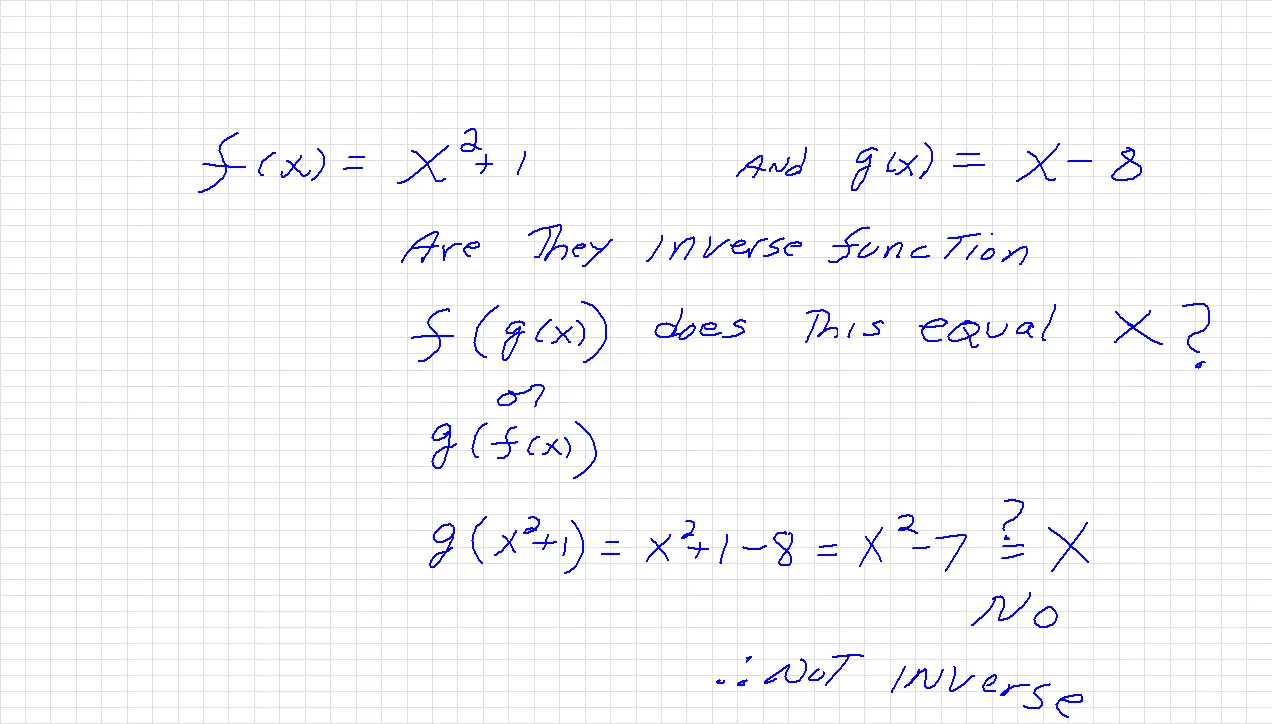 f(x) = x²+1 And g(x) = x-8
Are They inverse function
f(g(x)) does This equal x?
or
g(f(x))
g(x²+1) = x²+1-8 = x²-7 ≟ x
No
∴ Not inverse